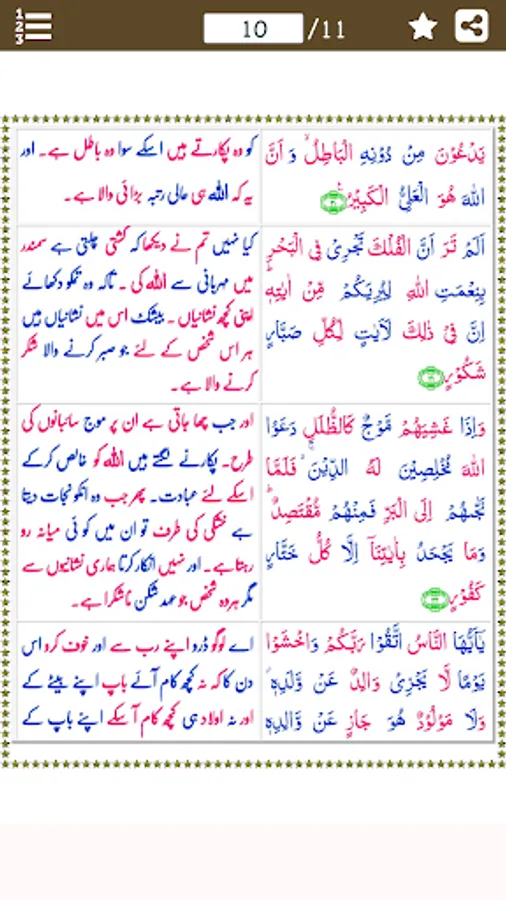 1
2
3
10 /11
یَدْعُوْنَ مِنْ دُوْنِهِ الْبَاطِلُ ۙ وَ اَنَّ
اللّٰهَ هُوَ الْعَلِیُّ الْكَبِیْرُ ۠ ۳۰
اَلَمْ تَرَ اَنَّ الْفُلْكَ تَجْرِیْ فِی الْبَحْرِ
بِنِعْمَتِ اللّٰهِ لِیُرِیَكُمْ مِّنْ اٰیٰتِهٖ ؕ
اِنَّ فِیْ ذٰلِكَ لَاٰیٰتٍ لِّكُلِّ صَبَّارٍ
شَكُوْرٍ ۳۱
وَاِذَا غَشِیَهُمْ مَّوْجٌ كَالظُّلَلِ دَعَوُا
اللّٰهَ مُخْلِصِیْنَ لَهُ الدِّیْنَ ۚ۬ فَلَمَّا
نَجّٰىهُمْ اِلَی الْبَرِّ فَمِنْهُمْ مُّقْتَصِدٌ ؕ
وَمَا یَجْحَدُ بِاٰیٰتِنَاۤ اِلَّا كُلُّ خَتَّارٍ
كَفُوْرٍ ۳۲
یٰۤاَیُّهَا النَّاسُ اتَّقُوْا رَبَّكُمْ وَاخْشَوْا
یَوْمًا لَّا یَجْزِیْ وَالِدٌ عَنْ وَّلَدِهٖ ؗ
وَلَا مَوْلُوْدٌ هُوَ جَازٍ عَنْ وَّالِدِهٖ
کو وہ پکارتے ہیں اسکے سوا وہ باطل ہے۔ اور
یہ کہ اللہ ہی عالی رتبہ بڑائی والا ہے۔
کیا نہیں تم نے دیکھا کہ کشتی چلتی ہے سمندر
میں مہربانی سے اللہ کی ۔ تاکہ وہ تمکو دکھائے
اپنی کچھ نشانیاں ۔ بیشک اس میں نشانیاں ہیں
ہر اس شخص کے لئے جو صبر کرنے والا شکر
کرنے والا ہے۔
اور جب چھا جاتی ہے ان پر موج سائبانوں کی
طرح۔ پکارنے لگتے ہیں اللہ کو خالص کرکے
اسکے لئے عبادت۔ پھر جب وہ انکو نجات دیتا
ہے خشکی کی طرف تو ان میں کوئی میانہ رو
رہتا ہے۔ اور نہیں انکار کرتا ہماری نشانیوں سے
مگر ہر وہ شخص جو عہد شکن ناشکرا ہے۔
اے لوگو ڈرو اپنے رب سے اور خوف کرو اس
دن کا کہ نہ کچھ کام آئے باپ اپنے بیٹے کے
اور نہ اولاد ہی کچھ کام آسکے اپنے باپ کے